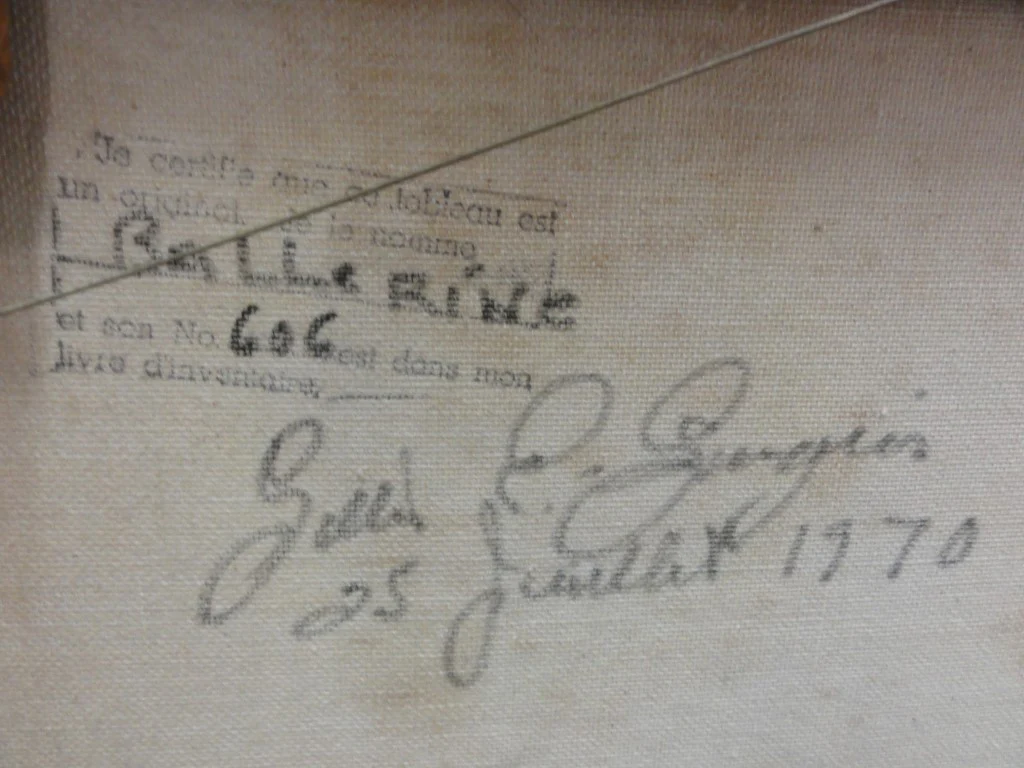 Je certifie que ce tableau est
un original. Je le nomme
BALLERINE
et son No. 606 est dans mon
livre d'inventaire.
Gilles E. Gingras
25 Juillet 1970